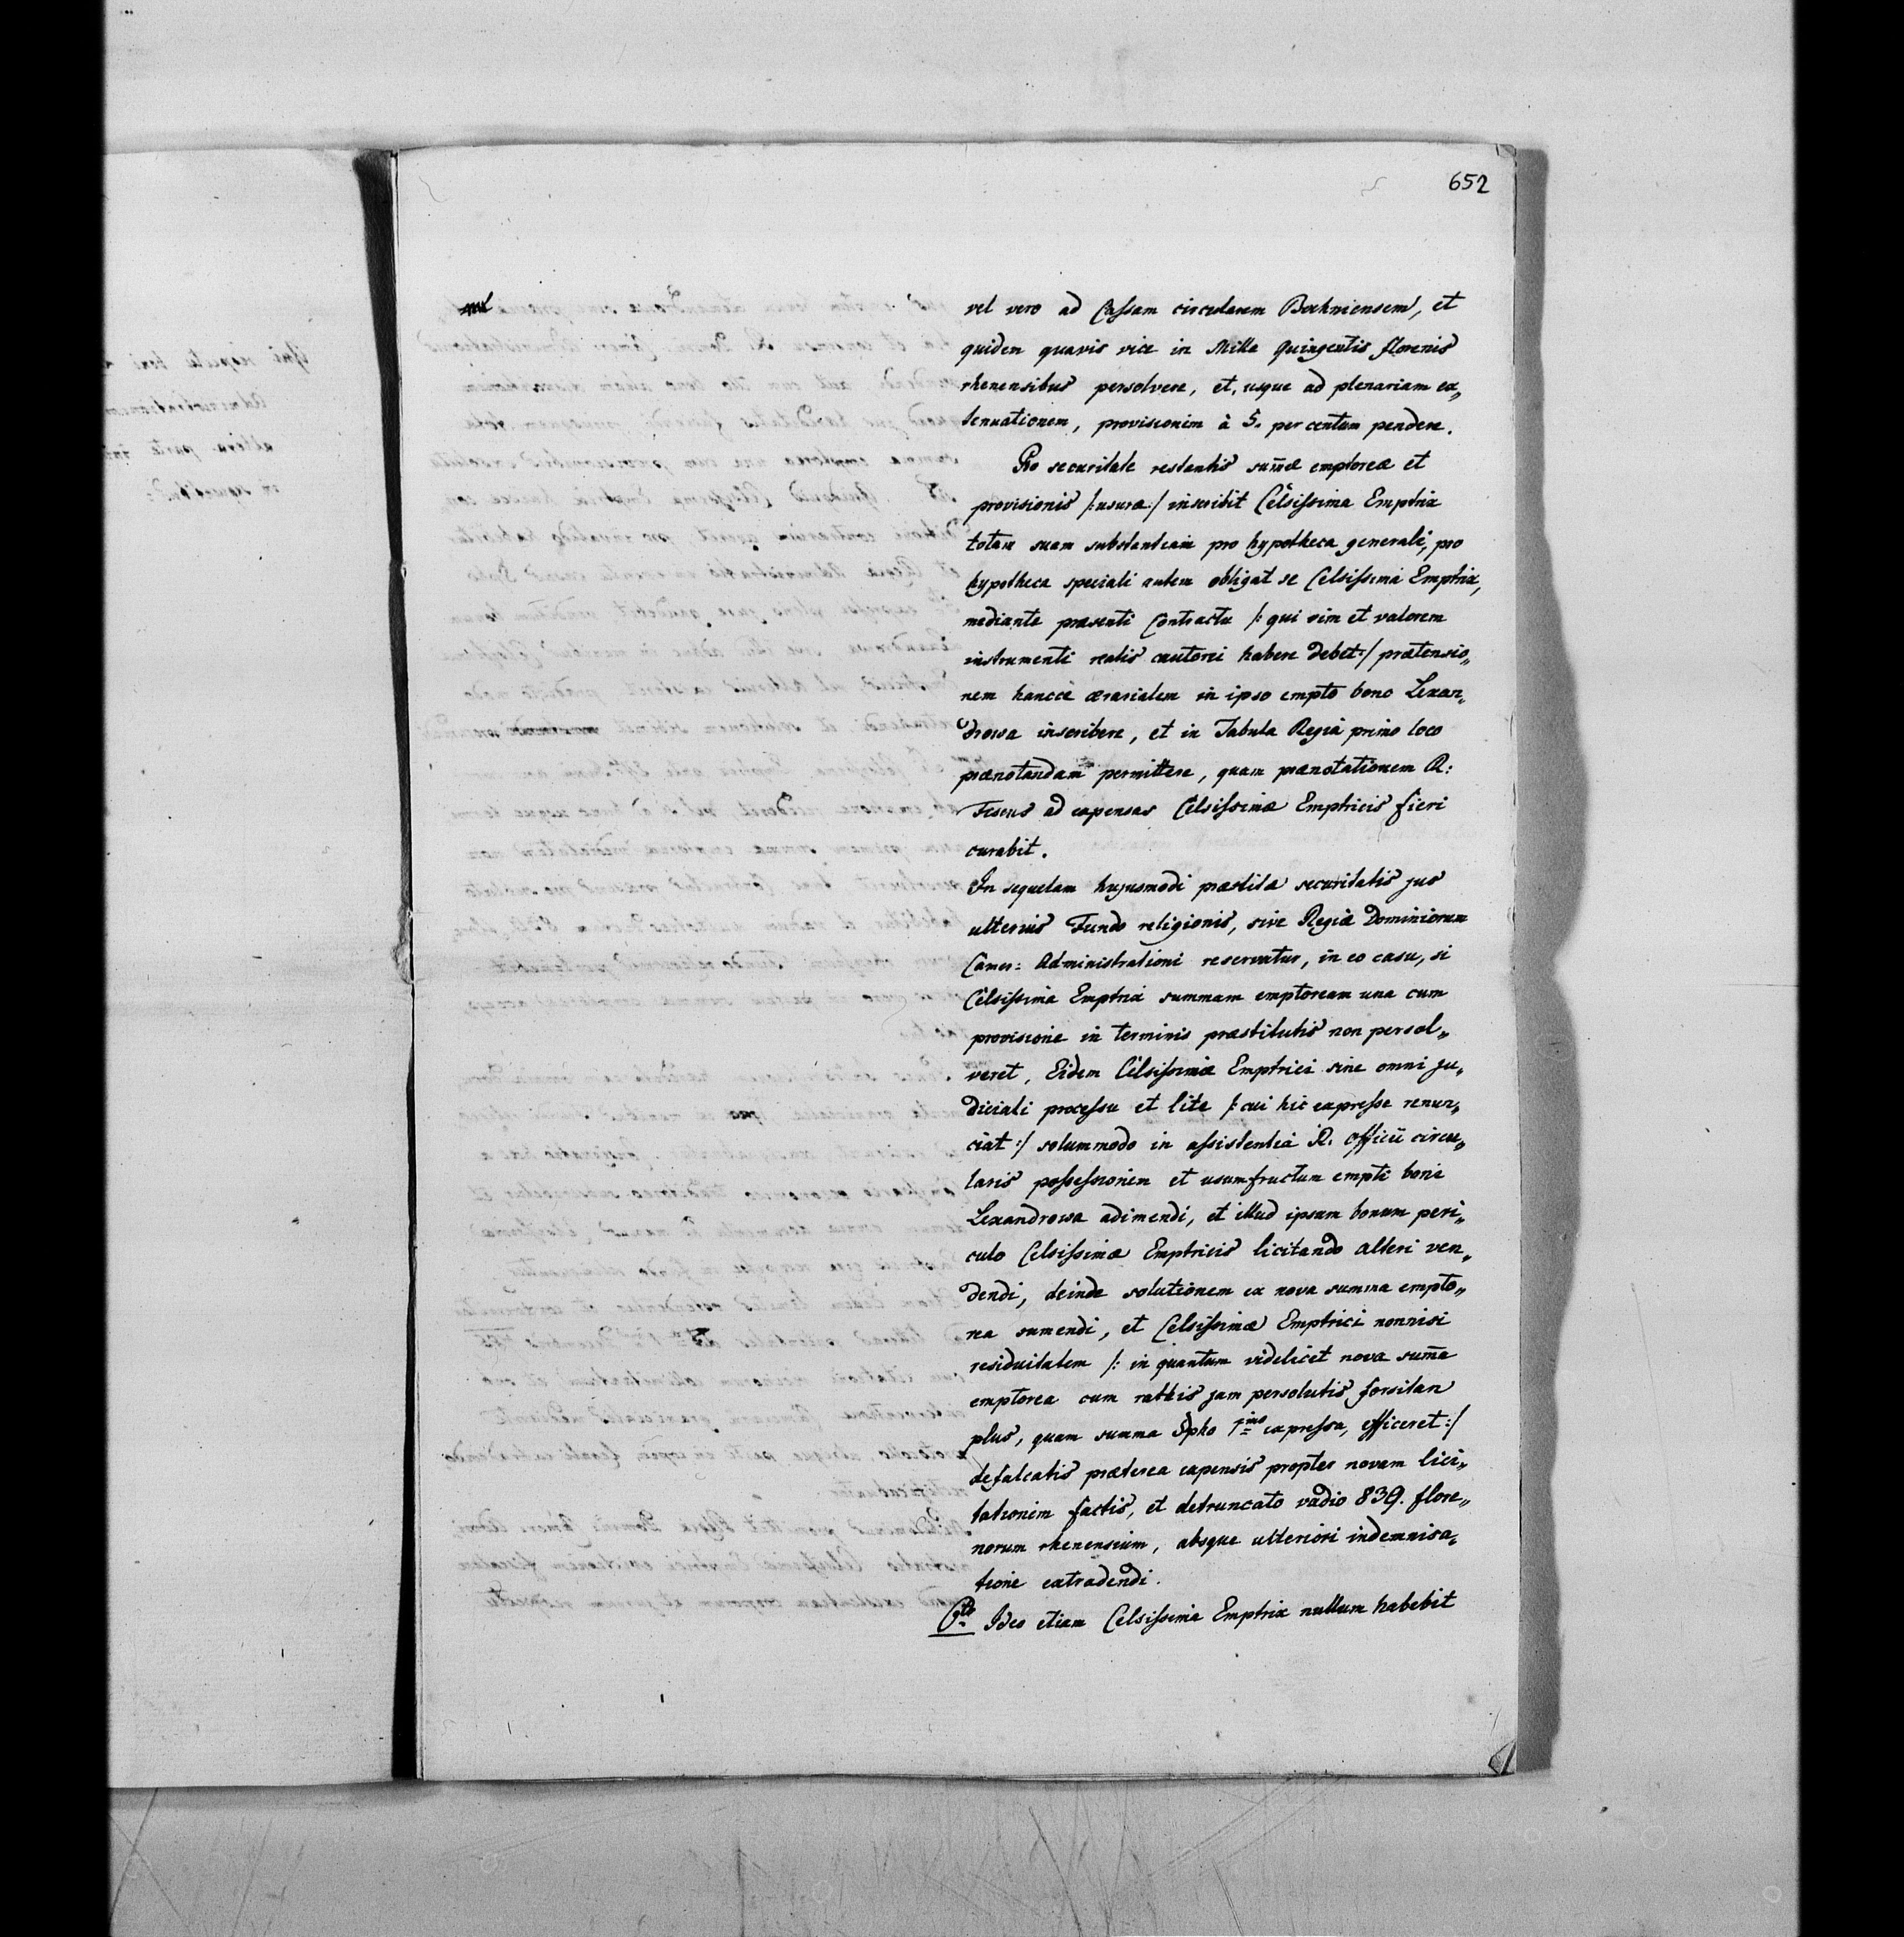 652
vel vero ad Cassam circularem Bochniensem, et
quidem quavis vice in Mille quingentis florenis
rhenensibus persolvere, et, usque ad plenariam ex„
tenuationem, provisionem à 5. per centum pendere.
Pro securitate restantis sum̄æ emptoreæ et
provisionis /: usuræ :/ inscribit Celsissima Emptrix
totam suam substantiam pro hypotheca generali, pro
hypotheca speciali autem obligat se Celsissima Emptrix,
mediante præsenti Contractu /: qui vim et valorem
instrumenti realis cautorei habere debet :/ prætensio„
nem hancce ærarialem in ipso empto bono Lexan„
drowa inscribere, et in Tabula Regia primo loco
prænotandam permittere, quam prænotationem R:
Fiscus ad expensas Celsissimæ Emptricis fieri
curabit.
In sequelam hujusmodi præstitæ securitatis jus
ulterius Fundo religionis, sive Regiæ Dominiorum
Camer: Administrationi reservatur, in eo casu, si
Celsissima Emptrix summam emptoream una cum
provisione in terminis præstitutis non persol„
veret, Eidem Celsissimæ Emptrici sine omni ju„
diciali processu et lite /: cui hic expresse renun„
ciat :/ solummodo in assistentia R. Officii circu„
laris possessionem et usumfructum empti boni
Lexandrowa adimendi, et illud ipsum bonum peri„
culo Celsissimæ Emptricis licitando alteri ven„
dendi, deinde solutionem ex nova summa empto„
rea sumendi, et Celsissimæ Emptrici nonnisi
residuitatem /: in quantum videlicet nova sum̄a
emptorea cum rathis jam persolutis forsitan
plus, quam summa §pho 1mo expressa, efficeret :/
defalcatis præterea expensis propter novam lici„
tationem factis, et detruncato vadio 839. flore„
norum rhenensium, absque ulteriori indemnisa„
tione extradendi.
6to Ideo etiam Celsissima Emptrix nullum habebit